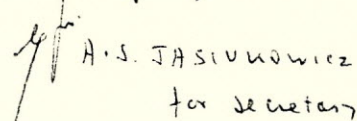 A.S. JASIUKOWICZ
for secretary